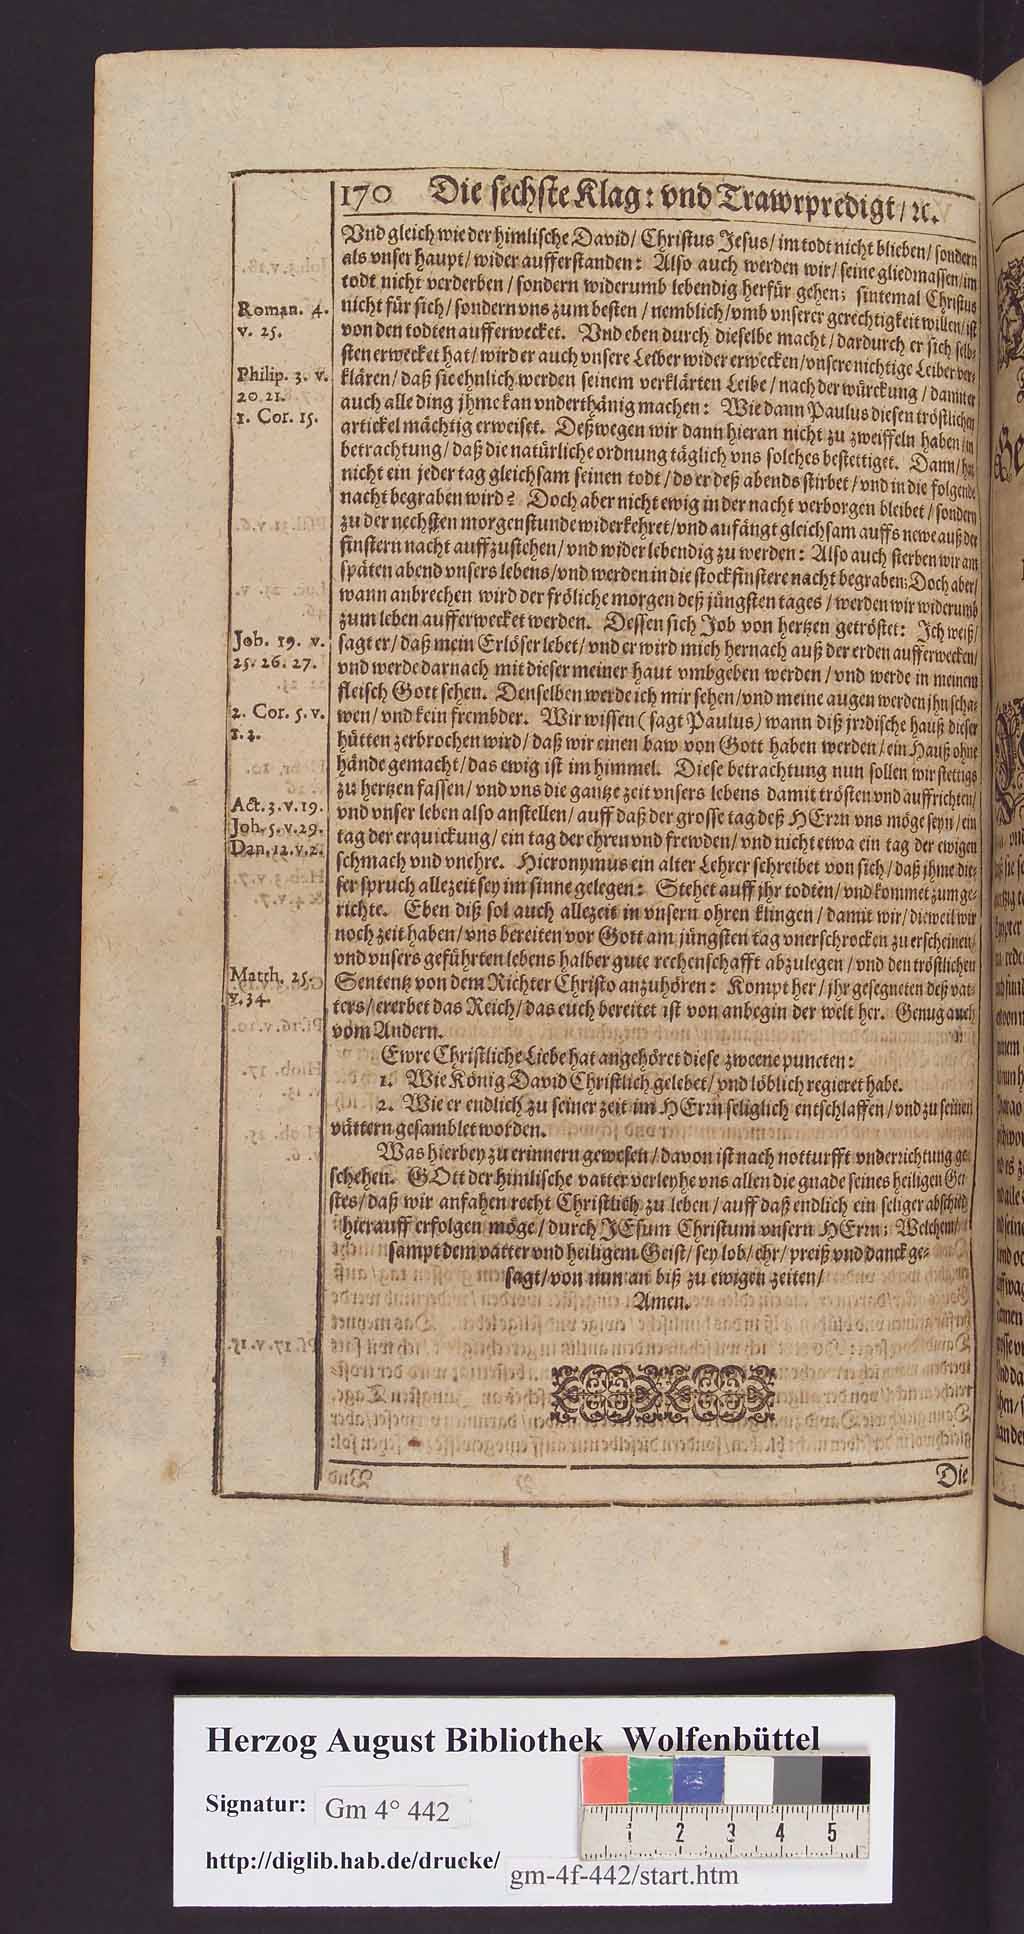 170 Die sechste Klag: vnd Trawrpredigt / ꝛc.
Vnd gleich wie der himlische David / Christus Jesus / im todt nicht blieben / sondern
als vnser haupt / wider aufferstanden: Also auch werden wir / seine gliedmassen / im
todt nicht verderben / sondern widerumb lebendig herfür gehen; sintemal Christus
nicht für sich / sondern vns zum besten / nemblich / vmb vnserer gerechtigkeit willen / ist
von den todten aufferwecket. Vnd eben durch dieselbe macht / dardurch er sich selb-
sten erwecket hat / wird er auch vnsere Leiber wider erwecken / vnsere nichtige Leiber ver-
klären / daß sie ehnlich werden seinem verklärten Leibe / nach der würckung / damit er
auch alle ding jhme kan vnderthänig machen: Wie dann Paulus diesen tröstlichen
artickel mächtig erweiset. Deßwegen wir dann hieran nicht zu zweiffeln haben / in
betrachtung / daß die natürliche ordnung täglich vns solches bestettiget. Dann / hat
nicht ein jeder tag gleichsam seinen todt / do er deß abends stirbet / vnd in die folgende
nacht begraben wird? Doch aber nicht ewig in der nacht verborgen bleibet / sondern
zu der nechsten morgenstunde widerkehret / vnd anfängt gleichsam auffs newe auß der
finstern nacht auffzustehen / vnd wider lebendig zu werden: Also auch sterben wir am
späten abend vnsers lebens / vnd werden in die stockfinstere nacht begraben; Doch aber /
wann anbrechen wird der fröliche morgen deß jüngsten tages / werden wir widerumb
zum leben aufferwecket werden. Dessen sich Job von hertzen getröstet: Ich weiß /
sagt er / daß mein Erlöser lebet / vnd er wird mich hernach auß der erden aufferwecken /
vnd werde darnach mit dieser meiner haut vmbgeben werden / vnd werde in meinem
fleisch Gott sehen. Denselben werde ich mir sehen / vnd meine augen werden jhn scha-
wen / vnd kein frembder. Wir wissen (sagt Paulus) wann diß jrrdische hauß dieser
hütten zerbrochen wird / daß wir einen baw von Gott haben werden / ein Hauß ohne
hände gemacht / das ewig ist im himmel. Diese betrachtung nun sollen wir stettigs
zu hertzen fassen / vnd vns die gantze zeit vnsers lebens damit trösten vnd auffrichten /
vnd vnser leben also anstellen / auff daß der grosse tag deß HErrn vns möge seyn / ein
tag der erquickung / ein tag der ehren vnd frewden / vnd nicht etwa ein tag der ewigen
schmach vnd vnehre. Hieronymus ein alter Lehrer schreibet von sich / daß jhme die-
ser spruch allezeit sey im sinne gelegen: Stehet auff jhr todten / vnd kommet zum ge-
richte. Eben diß sol auch allezeit in vnsern ohren klingen / damit wir / dieweil wir
noch zeit haben / vns bereiten vor Gott am jüngsten tag vnerschrocken zu erscheinen /
vnd vnsers geführten lebens halber gute rechenschafft abzulegen / vnd den tröstlichen
Sententz von dem Richter Christo anzuhören: Kompt her / jhr gesegneten deß vat-
ters / ererbet das Reich / das euch bereitet ist von anbegin der welt her. Genug auch
vom Andern.
Ewre Christliche Liebe hat angehöret diese zweene puncten:
1. Wie König David Christlich gelebet / vnd löblich regieret habe.
2. Wie er endlich zu seiner zeit im HErrn seliglich entschlaffen / vnd zu seinen
vättern gesamblet worden.
Was hierbey zu erinnern gewesen / davon ist nach notturfft vnderrichtung ge-
schehen. GOtt der himlische vatter verleyhe vns allen die gnade seines heiligen Gei-
stes / daß wir anfahen recht Christlich zu leben / auff daß endlich ein seliger abschied
hierauff erfolgen möge / durch JEsum Christum vnsern HErrn: Welchem /
sampt dem vatter vnd heiligem Geist / sey lob / ehr / preiß vnd danck ge-
sagt / von nun an biß zu ewigen zeiten /
Amen.
Die
Roman. 4.
v. 25.
Philip. 3. v.
20. 21.
1. Cor. 15.
Job. 19. v.
25. 26. 27.
2. Cor. 5. v.
1. 2.
Act. 3. v. 19.
Joh. 5. v. 29.
Dan. 12. v. 2.
Matth. 25.
v. 34.
Herzog August Bibliothek Wolfenbüttel
Signatur: Gm 4° 442
http://diglib.hab.de/drucke/ gm-4f-442/start.htm
1 2 3 4 5